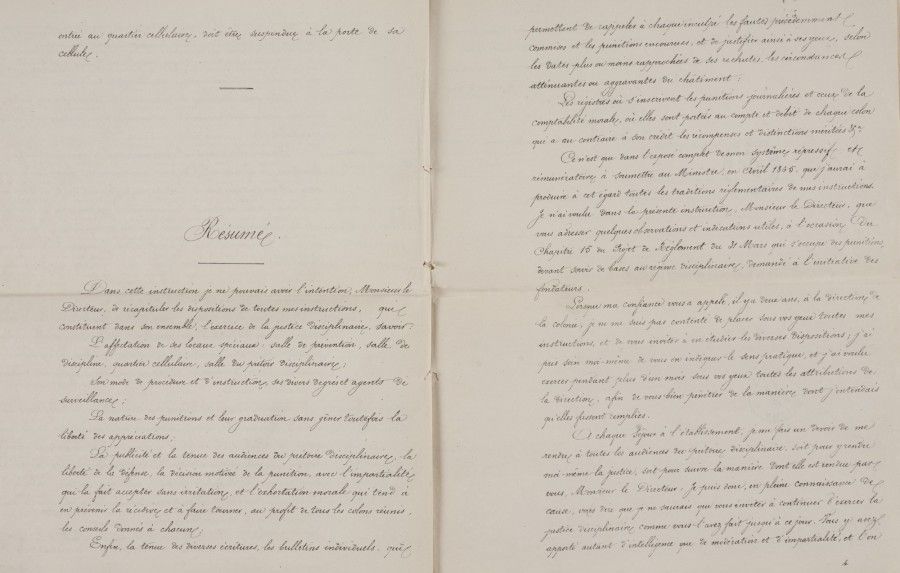 entrée au quartier cellulaire, doit être suspendue à la porte de sa
cellule.
Résumé.
Dans cette instruction je ne pouvais avoir l'intention, Monsieur le
Directeur, de récapituler les dispositions de toutes mes instructions, qui
constituent dans son ensemble, l'exercice de la justice disciplinaire, savoir:
L'affectation de ses locaux spéciaux: salle de prévention, salle de
discipline, quartier cellulaire, salle du prétoire disciplinaire;
Son mode de procédure et d'instruction, ses divers degrés et agents de
surveillance;
La nature des punitions et leur graduation sans gêner toutefois la
liberté des appréciations;
La publicité et la tenue des audiences du prétoire disciplinaire, la
liberté de la défense, la décision motivée de la punition, avec l'impartialité
qui la fait accepter sans irritation, et l'exhortation morale qui tend à
en prévenir la récidive et à faire tourner, au profit de tous les colons réunis,
les conseils donnés à chacun;
Enfin, la tenue des diverses écritures, les bulletins individuels, qui
permettent de rappeler à chaque inculpé les fautes précédemment
commises et les punitions encourues, et de justifier ainsi à ses yeux, selon
les dates plus ou moins rapprochées de ses rechutes, les circonstances
atténuantes ou aggravantes du châtiment;
Les registres où s'inscrivent les punitions journalières et ceux de la
comptabilité morale, où elles sont portées au compte et débit de chaque colon
qui a au contraire à son crédit les récompenses et distinctions méritées &a.
Ce n'est que dans l'exposé complet de mon système répressif et
rémunératoire à soumettre au Ministre, en Avril 1846, que j'aurai à
produire à cet égard toutes les traditions réglementaires de mes instructions.
Je n'ai voulu dans la présente instruction, Monsieur le Directeur, que
vous adresser quelques observations et indications utiles, à l'occasion du
Chapitre 15 du Projet de Règlement du 31 Mars qui s'occupe des punitions,
devant servir de bases au régime disciplinaire, demandé à l'initiative des
fondateurs.
Lorsque ma confiance vous a appelé, il y a deux ans, à la direction de
la colonie, je ne me suis pas contenté de placer sous vos yeux toutes mes
instructions, et de vous inviter à en étudier les diverses dispositions; j'ai
pris soin moi-même de vous en indiquer le sens pratique, et j'ai voulu
exercer pendant plus d'un mois sous vos yeux toutes les attributions de
la direction, afin de vous bien pénétrer de la manière dont j'entendais
qu'elles fussent remplies.
A chaque séjour à l'établissement, je me fais un devoir de me
rendre à toutes les audiences du prétoire disciplinaire, soit pour y rendre
moi-même la justice, soit pour suivre la manière dont elle est rendue par
vous, Monsieur le Directeur. Je puis donc, en pleine connaissance de
cause, vous dire que je ne saurais que vous inviter à continuer d'exercer la
justice disciplinaire comme vous l'avez fait jusqu'à ce jour. Vous y avez
apporté autant d'intelligence que de modération et d'impartialité, et l'on
4